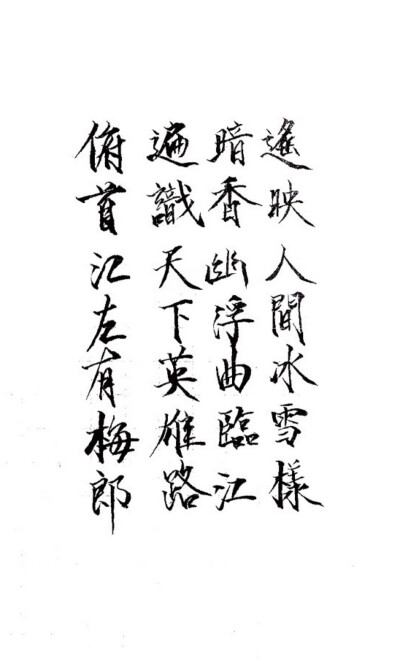 遙映人間冰雪樣
暗香幽浮曲臨江
遍識天下英雄路
俯首江左有梅郎